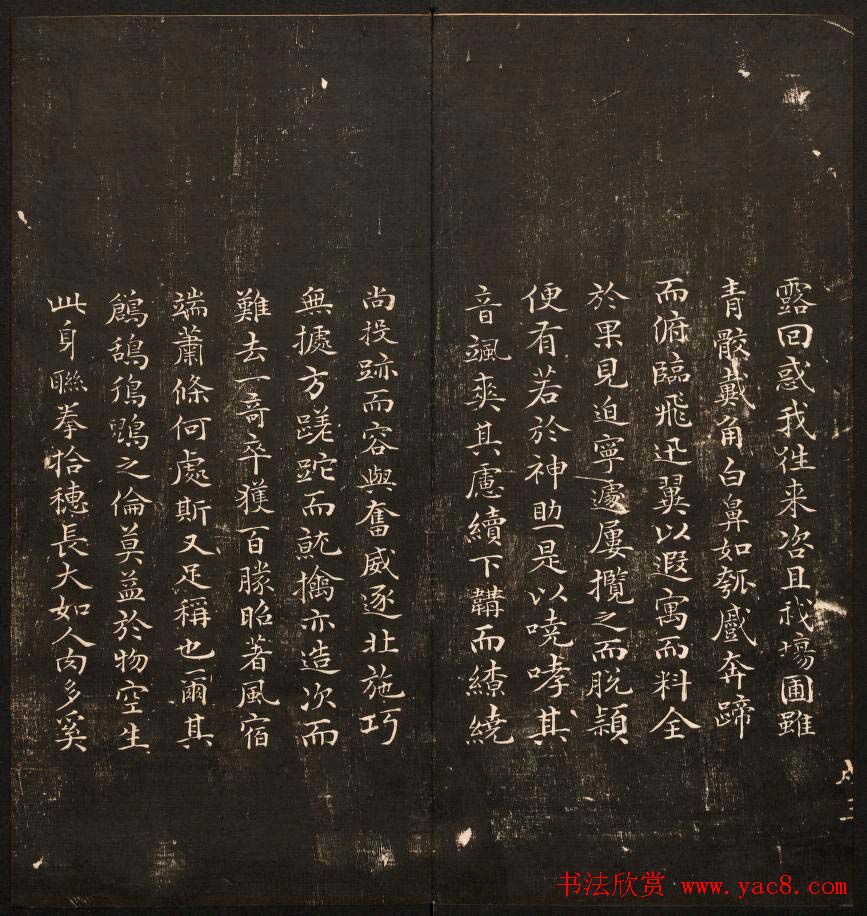 露回惑我往来次且我場圃雖
青骹戴角白鼻如瓠蹙奔蹄
而俯臨飛迅翼以遐寓而料全
於果見迫寧遽屢攬之而脫穎
便有若於神助是以哮哮其
音颯爽其慮續下鞲而繚繞
尚投跡而容與奮威逐北施巧
無據方蹉跎而就擒亦造次而
難去一奇卒獲百勝昭著風宿
端蕭條何處斯又足稱也爾其
鶬鴰鳵鶂之倫莫益於物空生
此身聯拳拾穗長大如人肉多奚
书法欣赏 www.yac8.com